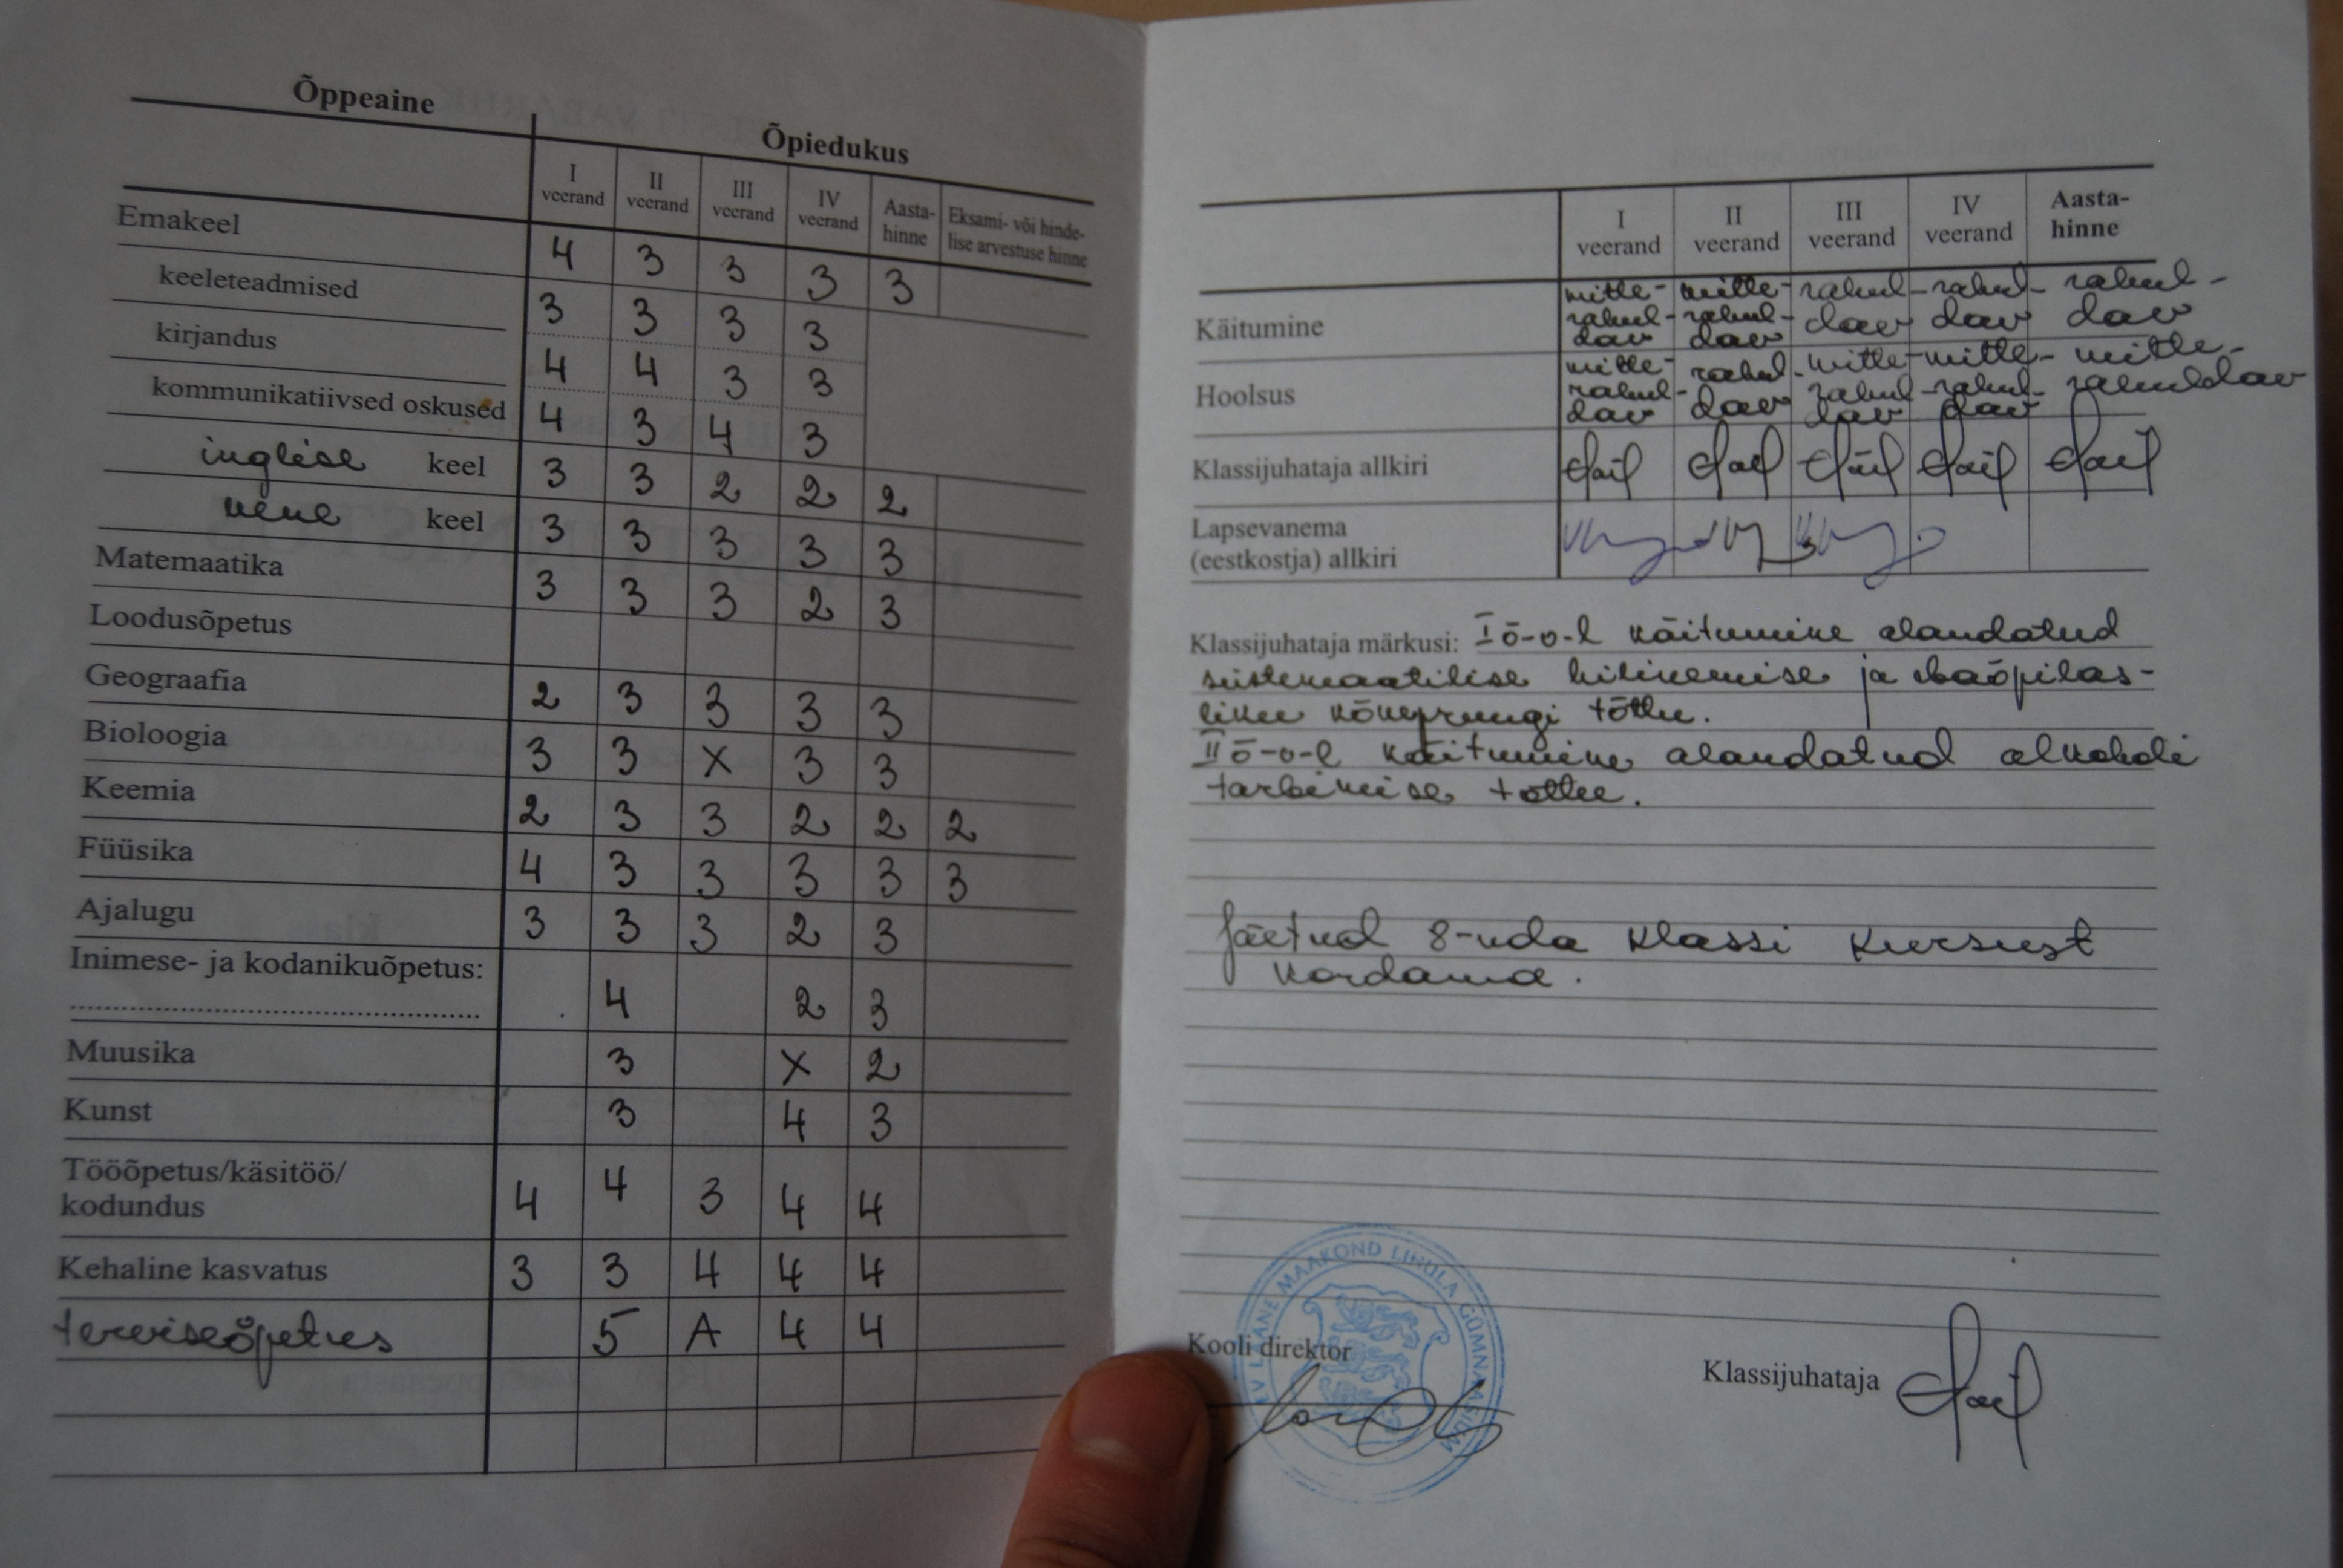 Õppeaine
Õpiedukus
I veerand II veerand III veerand IV veerand Aasta-hinne Eksami- või hinde-lise arvestuse hinne
Emakeel 4 3 3 3 3
keeleteadmised 3 3 3 3
kirjandus 4 4 3 3
kommunikatiivsed oskused 4 3 4 3
inglise keel 3 3 2 2 2
vene keel 3 3 3 3 3
Matemaatika 3 3 3 2 3
Loodusõpetus
Geograafia 2 3 3 3 3
Bioloogia 3 3 X 3 3
Keemia 2 3 3 2 2 2
Füüsika 4 3 3 3 3 3
Ajalugu 3 3 3 2 3
Inimese- ja kodanikuõpetus:
4 2 3
Muusika 3 X 2
Kunst 3 4 3
Tööõpetus/käsitöö/
kodundus 4 4 3 4 4
Kehaline kasvatus 3 3 4 4 4
terviseõpetus 5 A 4 4
I veerand II veerand III veerand IV veerand Aasta-hinne
Käitumine mitte-rahul-dav mitte-rahul-dav rahul-dav rahul-dav rahul-dav
Hoolsus mitte-rahul-dav rahul-dav mitte-rahul-dav mitte-rahul-dav mitte-rahuldav
Klassijuhataja allkiri
Lapsevanema
(eestkostja) allkiri
Klassijuhataja märkusi: I õ-v-l käitumine alandatud
süstemaatilise hilinemise ja ebaõpilas-
liku kõnepruugi tõttu.
II õ-v-l käitumine alandatud alkoholi
tarbimise tõttu.
Jäetud 8-nda klassi kursust
kordama.
EV LÄÄNE MAAKOND LIHULA GÜMNAASIUM
Kooli direktor
Klassijuhataja